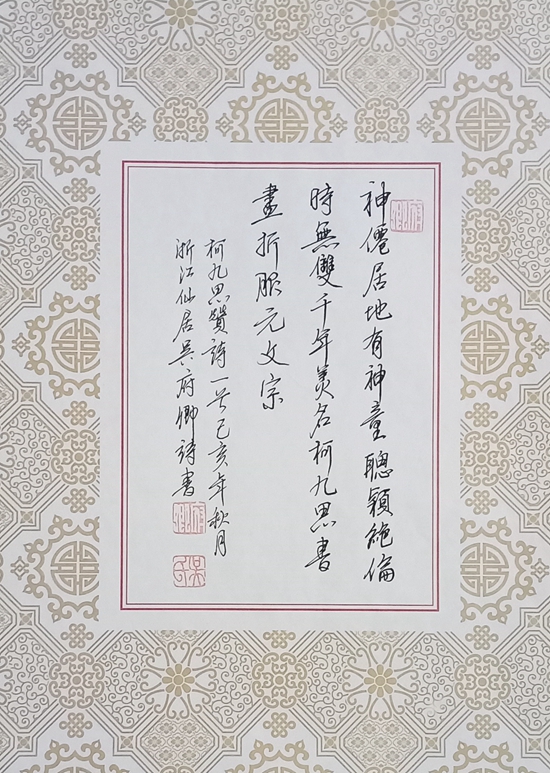 神僊居地有神童聰穎絶倫
時無雙千年美名柯九思書
畫折服元文宗
柯九思贊詩一首己亥年秋月
浙江仙居吳府卿詩書
府卿
府卿
吳氏